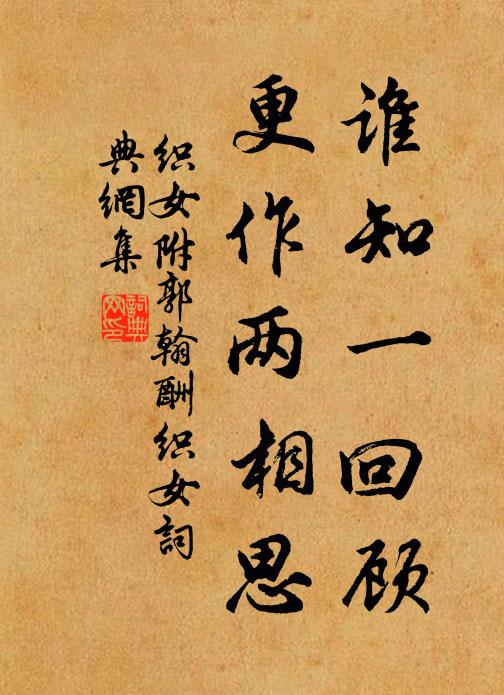 谁知一回顾
更作两相思
织女附郭翰酬织女词
典網集
詞典网印